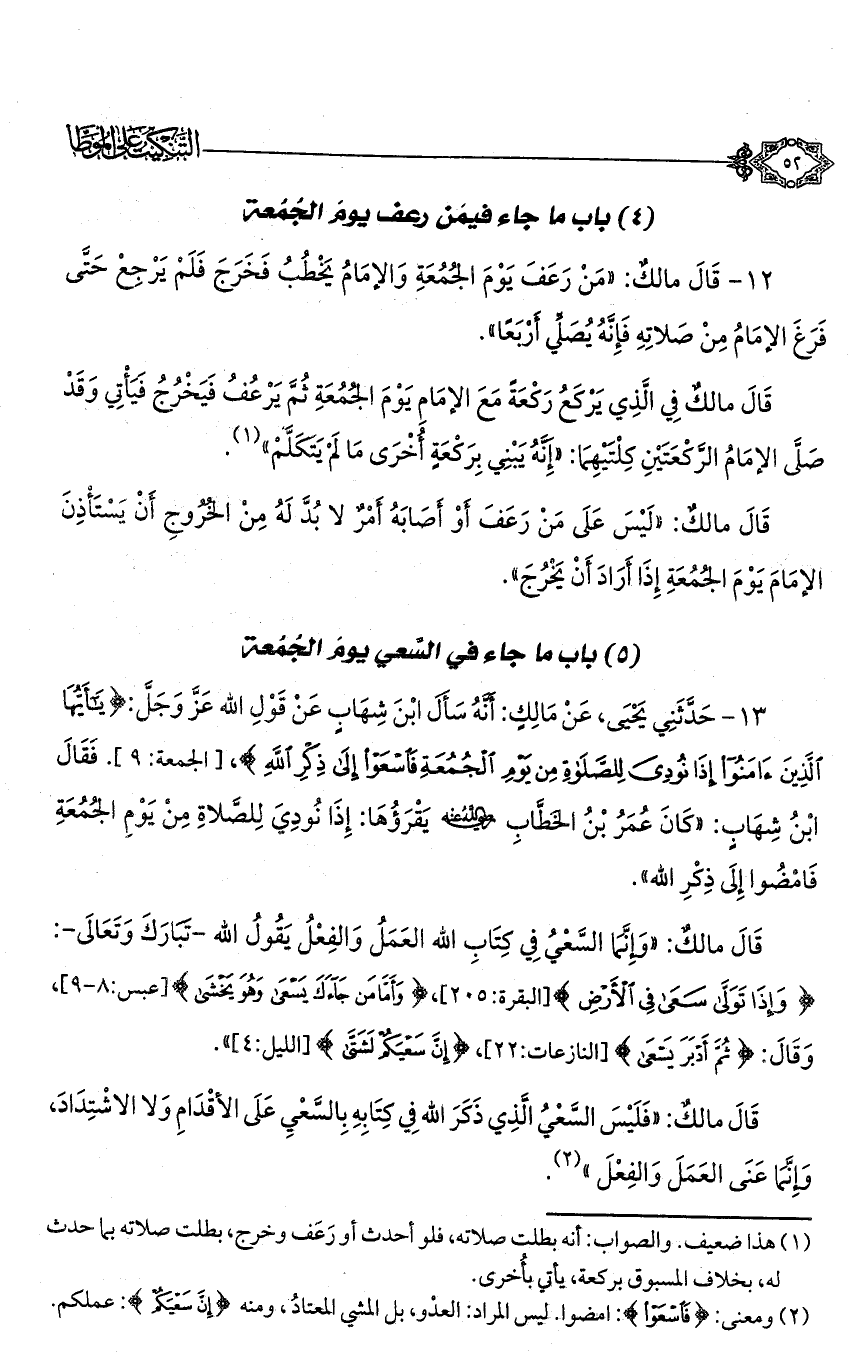 التنكيت على الموطأ
٥٢
(٤) باب ما جاء فيمَن رعف يومَ الجُمُعة
١٢- قَالَ مالكٌ: «مَنْ رَعَفَ يَوْمَ الجُمُعَةِ وَالإمَامُ يَخْطُبُ فَخَرَجَ فَلَمْ يَرْجِعْ حَتَّى
فَرَغَ الإمَامُ مِنْ صَلاتِهِ فَإِنَّهُ يُصَلِّي أَرْبَعًا».
قَالَ مالكٌ فِي الَّذِي يَرْكَعُ رَكْعَةً مَعَ الإمَامِ يَوْمَ الجُمُعَةِ ثُمَّ يَرْعُفُ فَيَخْرُجُ فَيَأْتِي وَقَدْ
صَلَّى الإمَامُ الرَّكْعَتَيْنِ كِلْتَيْهِمَا: «إِنَّهُ يَبْنِي بِرَكْعَةٍ أُخْرَى مَا لَمْ يَتَكَلَّمْ»(١).
قَالَ مالكٌ: «لَيْسَ عَلَى مَنْ رَعَفَ أَوْ أَصَابَهُ أَمْرٌ لا بُدَّ لَهُ مِنْ الخُرُوجِ أَنْ يَسْتَأْذِنَ
الإمَامَ يَوْمَ الجُمُعَةِ إِذَا أَرَادَ أَنْ يَخْرُجَ».
(٥) باب ما جاء في السَّعي يومَ الجُمُعة
١٣- حَدَّثَنِي يَحْيَى، عَنْ مَالِكٍ: أَنَّهُ سَأَلَ ابْنَ شِهَابٍ عَنْ قَوْلِ الله عَزَّ وَجَلَّ: ﴿يَٰٓأَيُّهَا
ٱلَّذِينَ ءَامَنُوٓا۟ إِذَا نُودِىَ لِلصَّلَوٰةِ مِن يَوْمِ ٱلْجُمُعَةِ فَٱسْعَوْا۟ إِلَىٰ ذِكْرِ ٱللَّهِ﴾، [الجمعة: ٩]. فَقَالَ
ابْنُ شِهَابٍ: «كَانَ عُمَرُ بْنُ الخَطَّابِ رضي الله عنه يَقْرَؤُهَا: إِذَا نُودِيَ لِلصَّلاةِ مِنْ يَوْمِ الجُمُعَةِ
فَامْضُوا إِلَى ذِكْرِ الله».
قَالَ مالكٌ: «وَإِنَّمَا السَّعْيُ فِي كِتَابِ الله العَمَلُ وَالفِعْلُ يَقُولُ الله -تَبَارَكَ وَتَعَالَى-:
﴿وَإِذَا تَوَلَّىٰ سَعَىٰ فِى ٱلْأَرْضِ﴾[البقرة:٢٠٥]، ﴿وَأَمَّا مَن جَآءَكَ يَسْعَىٰ وَهُوَ يَخْشَىٰ﴾[عبس:٨-٩]،
وَقَالَ: ﴿ثُمَّ أَدْبَرَ يَسْعَىٰ﴾ [النازعات:٢٢]، ﴿إِنَّ سَعْيَكُمْ لَشَتَّىٰ﴾ [الليل:٤]».
قَالَ مالكٌ: «فَلَيْسَ السَّعْيُ الَّذِي ذَكَرَ الله فِي كِتَابِهِ بِالسَّعْيِ عَلَى الأقْدَامِ وَلا الاشْتِدَادَ،
وَإِنَّمَا عَنَى العَمَلَ وَالفِعْلَ»(٢).
(١) هذا ضعيف. والصواب: أنه بطلت صلاته، فلو أحدث أو رَعَف وخرج، بطلت صلاته بما حدث
له، بخلاف المسبوق بركعة، يأتي بأُخرى.
(٢) ومعنى: ﴿فَٱسْعَوْا۟﴾: امضوا. ليس المراد: العدْو، بل المشي المعتادُ، ومنه ﴿إِنَّ سَعْيَكُمْ﴾: عملكم.